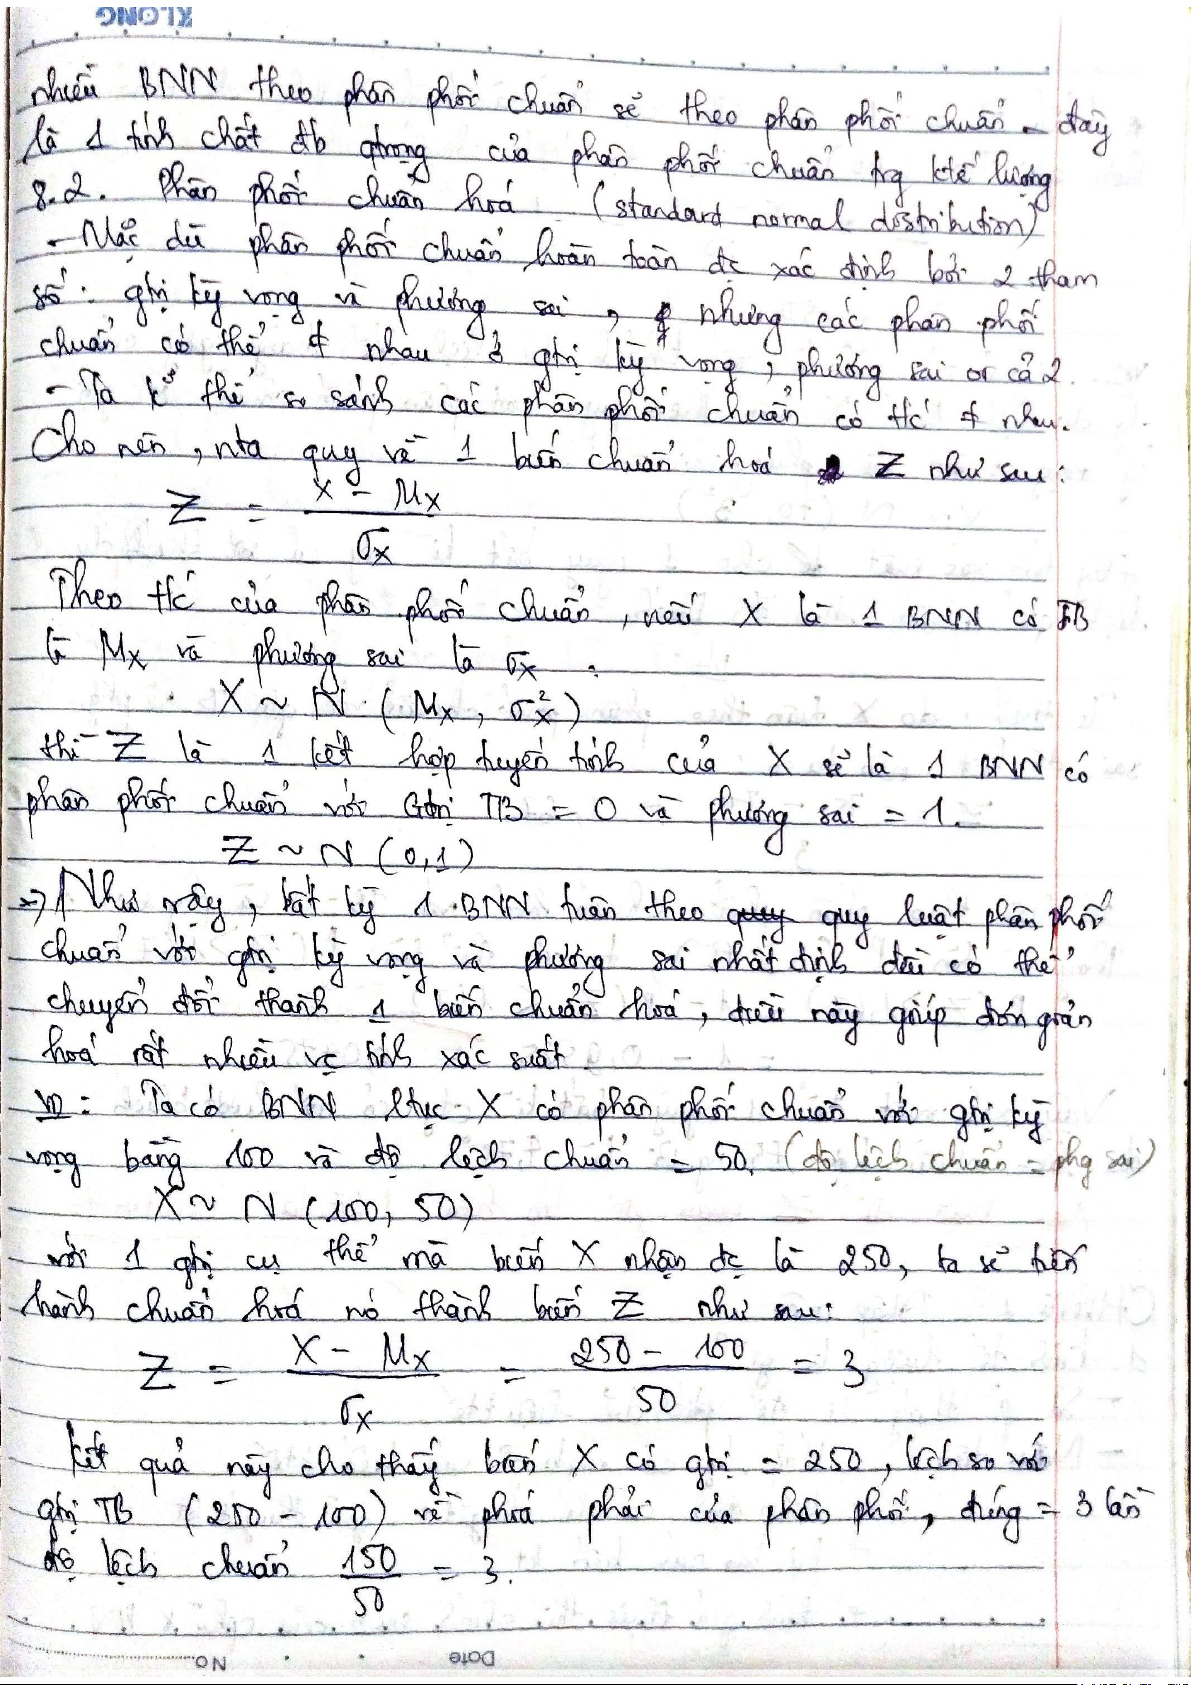 KLONG
nhiều BNN theo phân phối chuẩn sẽ theo phân phối chuẩn - đây
là 1 tính chất đb qtrọng của phân phối chuẩn trg ktế lượng
8.2. Phân phối chuẩn hoá (standard normal distribution)
- Mặc dù phân phối chuẩn hoàn toàn đc xác định bởi 2 tham
số: gtrị kỳ vọng và phương sai, nhưng các phân phối
chuẩn có thể ≠ nhau ở gtrị kỳ vọng, phương sai or cả 2.
- Ta k thể so sánh các phân phối chuẩn có t/c ≠ nhau.
Cho nên, nta quy về 1 biến chuẩn hoá Z như sau:
Z = (X - Mx) / σx
Theo t/c của phân phối chuẩn, nếu X là 1 BNN có TB
là Mx và phương sai là σx :
X ~ N (Mx, σx²)
thì Z là 1 kết hợp tuyến tính của X sẽ là 1 BNN có
phân phối chuẩn với Gtrị TB = 0 và phương sai = 1.
Z ~ N (0,1)
=> Như vậy, bất kỳ 1 BNN tuân theo quy luật phân phối
chuẩn với gtrị kỳ vọng và phương sai nhất định đều có thể
chuyển đổi thành 1 biến chuẩn hoá, điều này giúp đơn giản
hoá rất nhiều vc tính xác suất.
VD: Ta có BNN ltục X có phân phối chuẩn với gtrị kỳ
vọng bằng 100 và độ lệch chuẩn = 50. (độ lệch chuẩn = phg sai)
X ~ N (100, 50)
với 1 gtrị cụ thể mà biến X nhận đc là 250, ta sẽ tiến
hành chuẩn hoá nó thành biến Z như sau:
Z = (X - Mx) / σx = (250 - 100) / 50 = 3
Kết quả này cho thấy biến X có gtrị = 250, lệch so với
gtrị TB (250 - 100) về phoá phải của phân phối, đúng = 3 lần
độ lệch chuẩn 150/50 = 3.
No Date